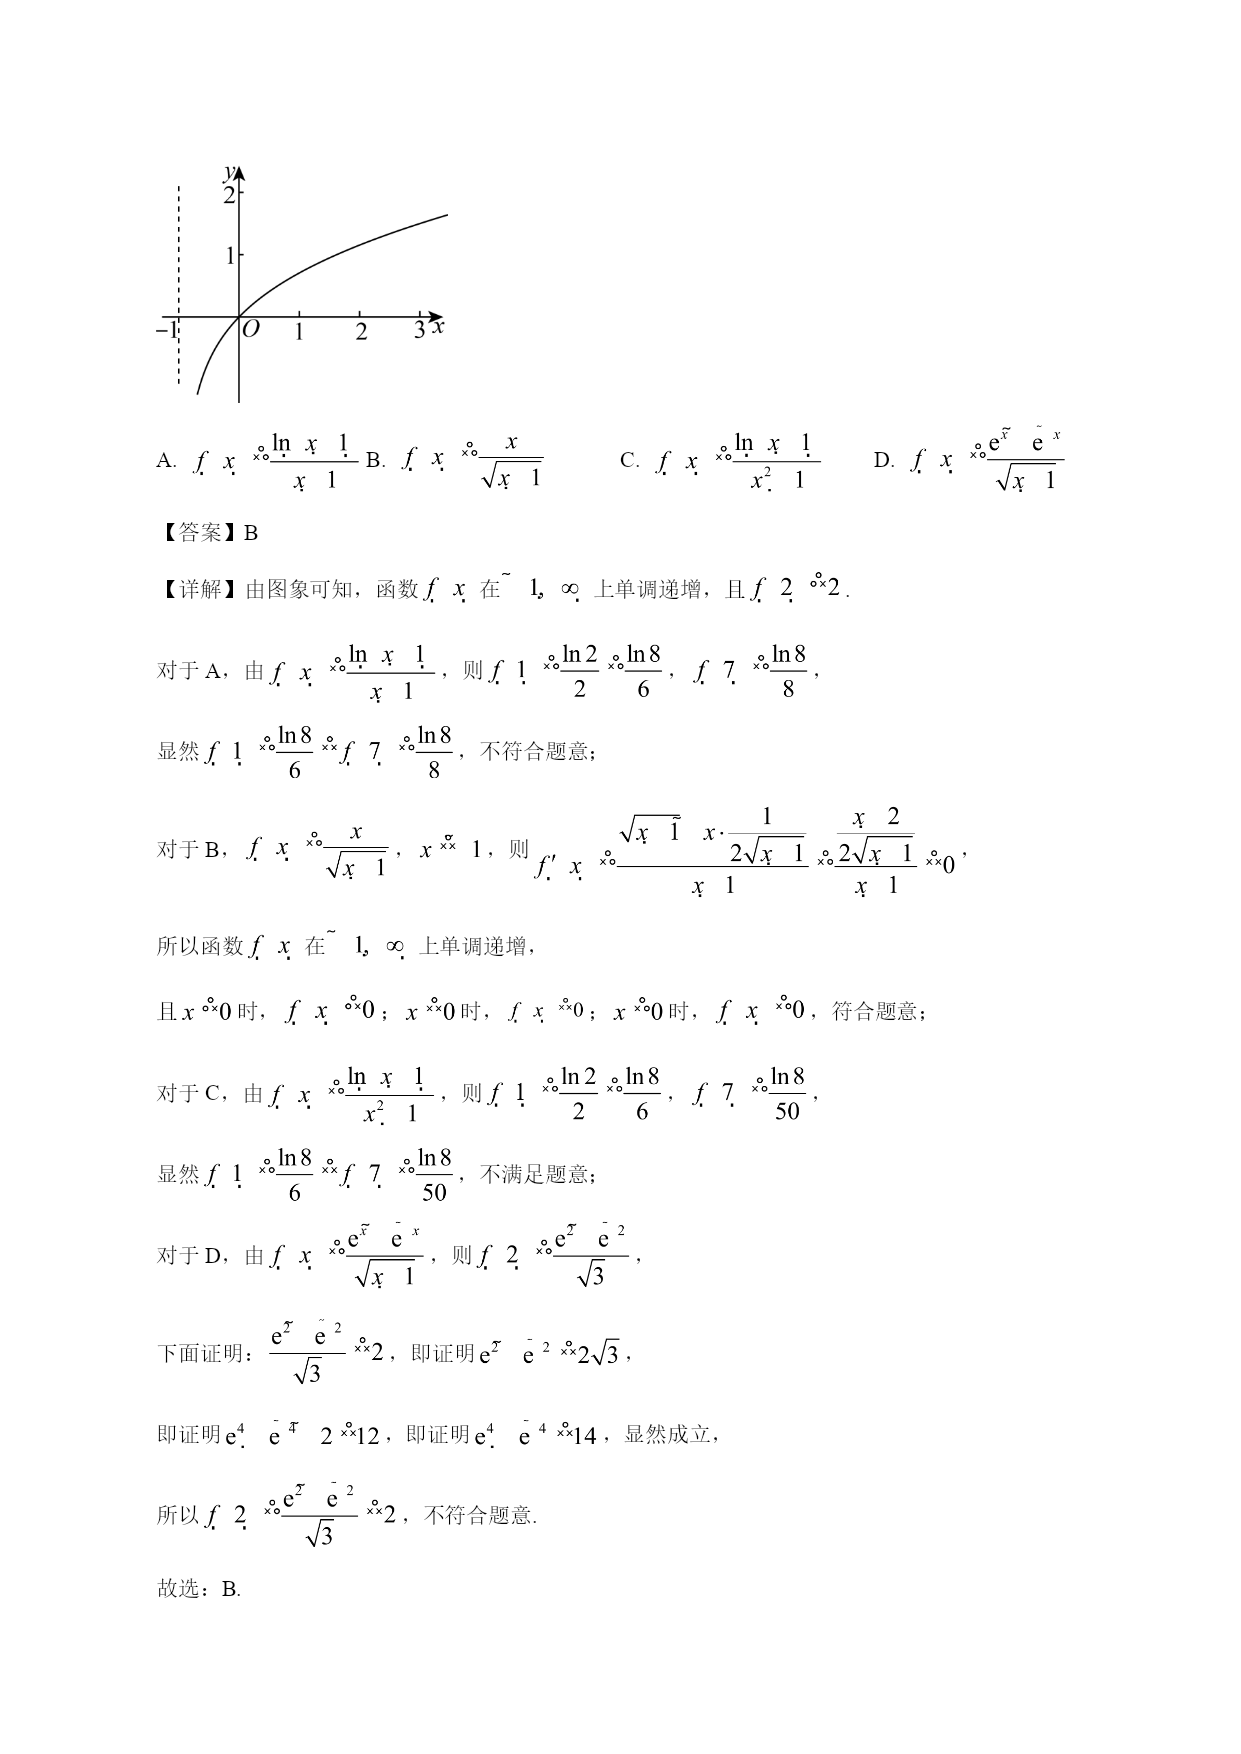 y
2
1
−1 O 1 2 3 x
A. f x ln x 1 / x 1 B. f x x / √x 1 C. f x ln x 1 / x² 1 D. f x eˣ e ˣ / √x 1
【答案】B
【详解】由图象可知，函数 f x 在 1, ∞ 上单调递增，且 f 2 2 .
对于 A，由 f x ln x 1 / x 1 ，则 f 1 ln 2 / 2 ln 8 / 6 ，f 7 ln 8 / 8 ，
显然 f 1 ln 8 / 6 f 7 ln 8 / 8 ，不符合题意；
对于 B，f x x / √x 1 ，x 1 ，则 f′ x √x 1 x · 1 / 2√x 1 / x 1 x 2 / 2√x 1 / x 1 0 ，
所以函数 f x 在 1, ∞ 上单调递增，
且 x 0 时，f x 0 ；x 0 时，f x 0 ；x 0 时，f x 0 ，符合题意；
对于 C，由 f x ln x 1 / x² 1 ，则 f 1 ln 2 / 2 ln 8 / 6 ，f 7 ln 8 / 50 ，
显然 f 1 ln 8 / 6 f 7 ln 8 / 50 ，不满足题意；
对于 D，由 f x eˣ e ˣ / √x 1 ，则 f 2 e² e ² / √3 ，
下面证明：e² e ² / √3 2 ，即证明 e² e ² 2√3 ，
即证明 e⁴ e ⁴ 2 12 ，即证明 e⁴ e ⁴ 14 ，显然成立，
所以 f 2 e² e ² / √3 2 ，不符合题意.
故选：B.